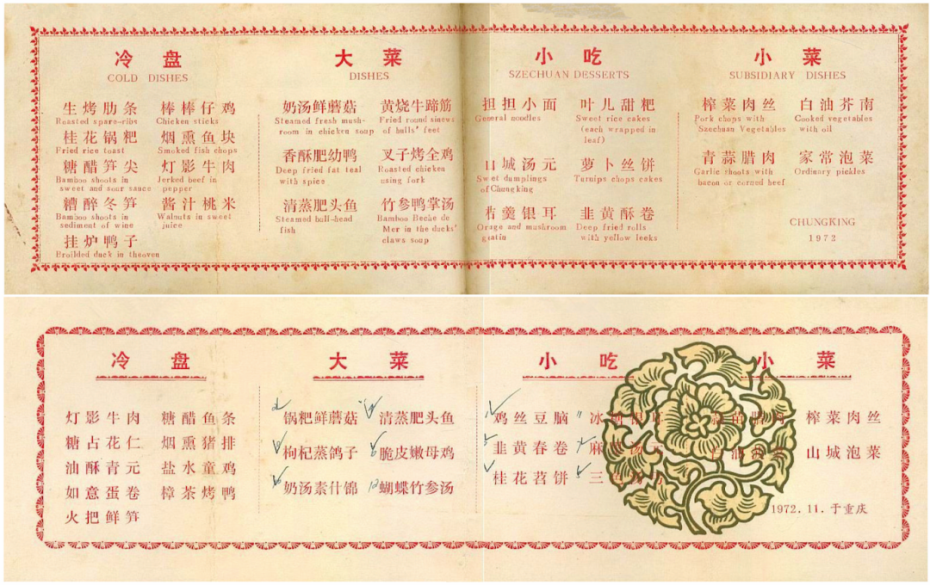 冷盘
COLD DISHES
生烤肋条 棒棒仔鸡
Roasted spare-ribs Chicken sticks
桂花锅粑 烟熏鱼块
Fried rice toast Smoked fish chops
糖醋笋尖 灯影牛肉
Bamboo shoots in Jerked beef in
sweet and sour sauce pepper
糟醉冬笋 酱汁桃米
Bamboo shoots in Walnuts in sweet
sediment of wine juice
挂炉鸭子
Broilded duck in theoven
大菜
DISHES
奶汤鲜蘑菇 黄烧牛蹄筋
Steamed fresh mush- Fried round sinews
room in chicken soup of bulls' feet
香酥肥幼鸭 叉子烤全鸡
Deep fried fat teal Roasted chicken
with spice using fork
清蒸肥头鱼 竹参鸭掌汤
Steamed bull-head Bamboo Beche de
fish Mer in the ducks'
claws soup
小吃
SZECHUAN DESSERTS
担担小面 叶儿甜粑
General noodles Sweet rice cakes
(each wrapped in
leaf)
山城汤元 萝卜丝饼
Swet dumplings Turnips chops cakes
of Chungking
羹银耳 韭黄酥卷
and mushroom Deep fried rolls
with yellow leeks
小菜
SUBSIDIARY DISHES
榨菜肉丝 白油芥南
Pork chops with Cooked vegetables
Szechuan Vegetables with oil
青蒜腊肉 家常泡菜
Garlic shoots with Ordinary pickles
bacon or corned beef
CHUNGKING
1972
冷盘
灯影牛肉 糖醋鱼条
糖占花仁 烟熏猪排
油酥青元 盐水童鸡
如意蛋卷 樟茶烤鸭
火把鲜笋
大菜
锅粑鲜蘑菇 清蒸肥头鱼
枸杞蒸鸽子 脆皮嫩母鸡
奶汤素什锦 蝴蝶竹参汤
小吃
鸡丝豆脑 冰
韭黄春卷 麻 汤元
桂花苕饼 三
小菜
榨菜肉丝
山城泡菜
1972.11.于重庆